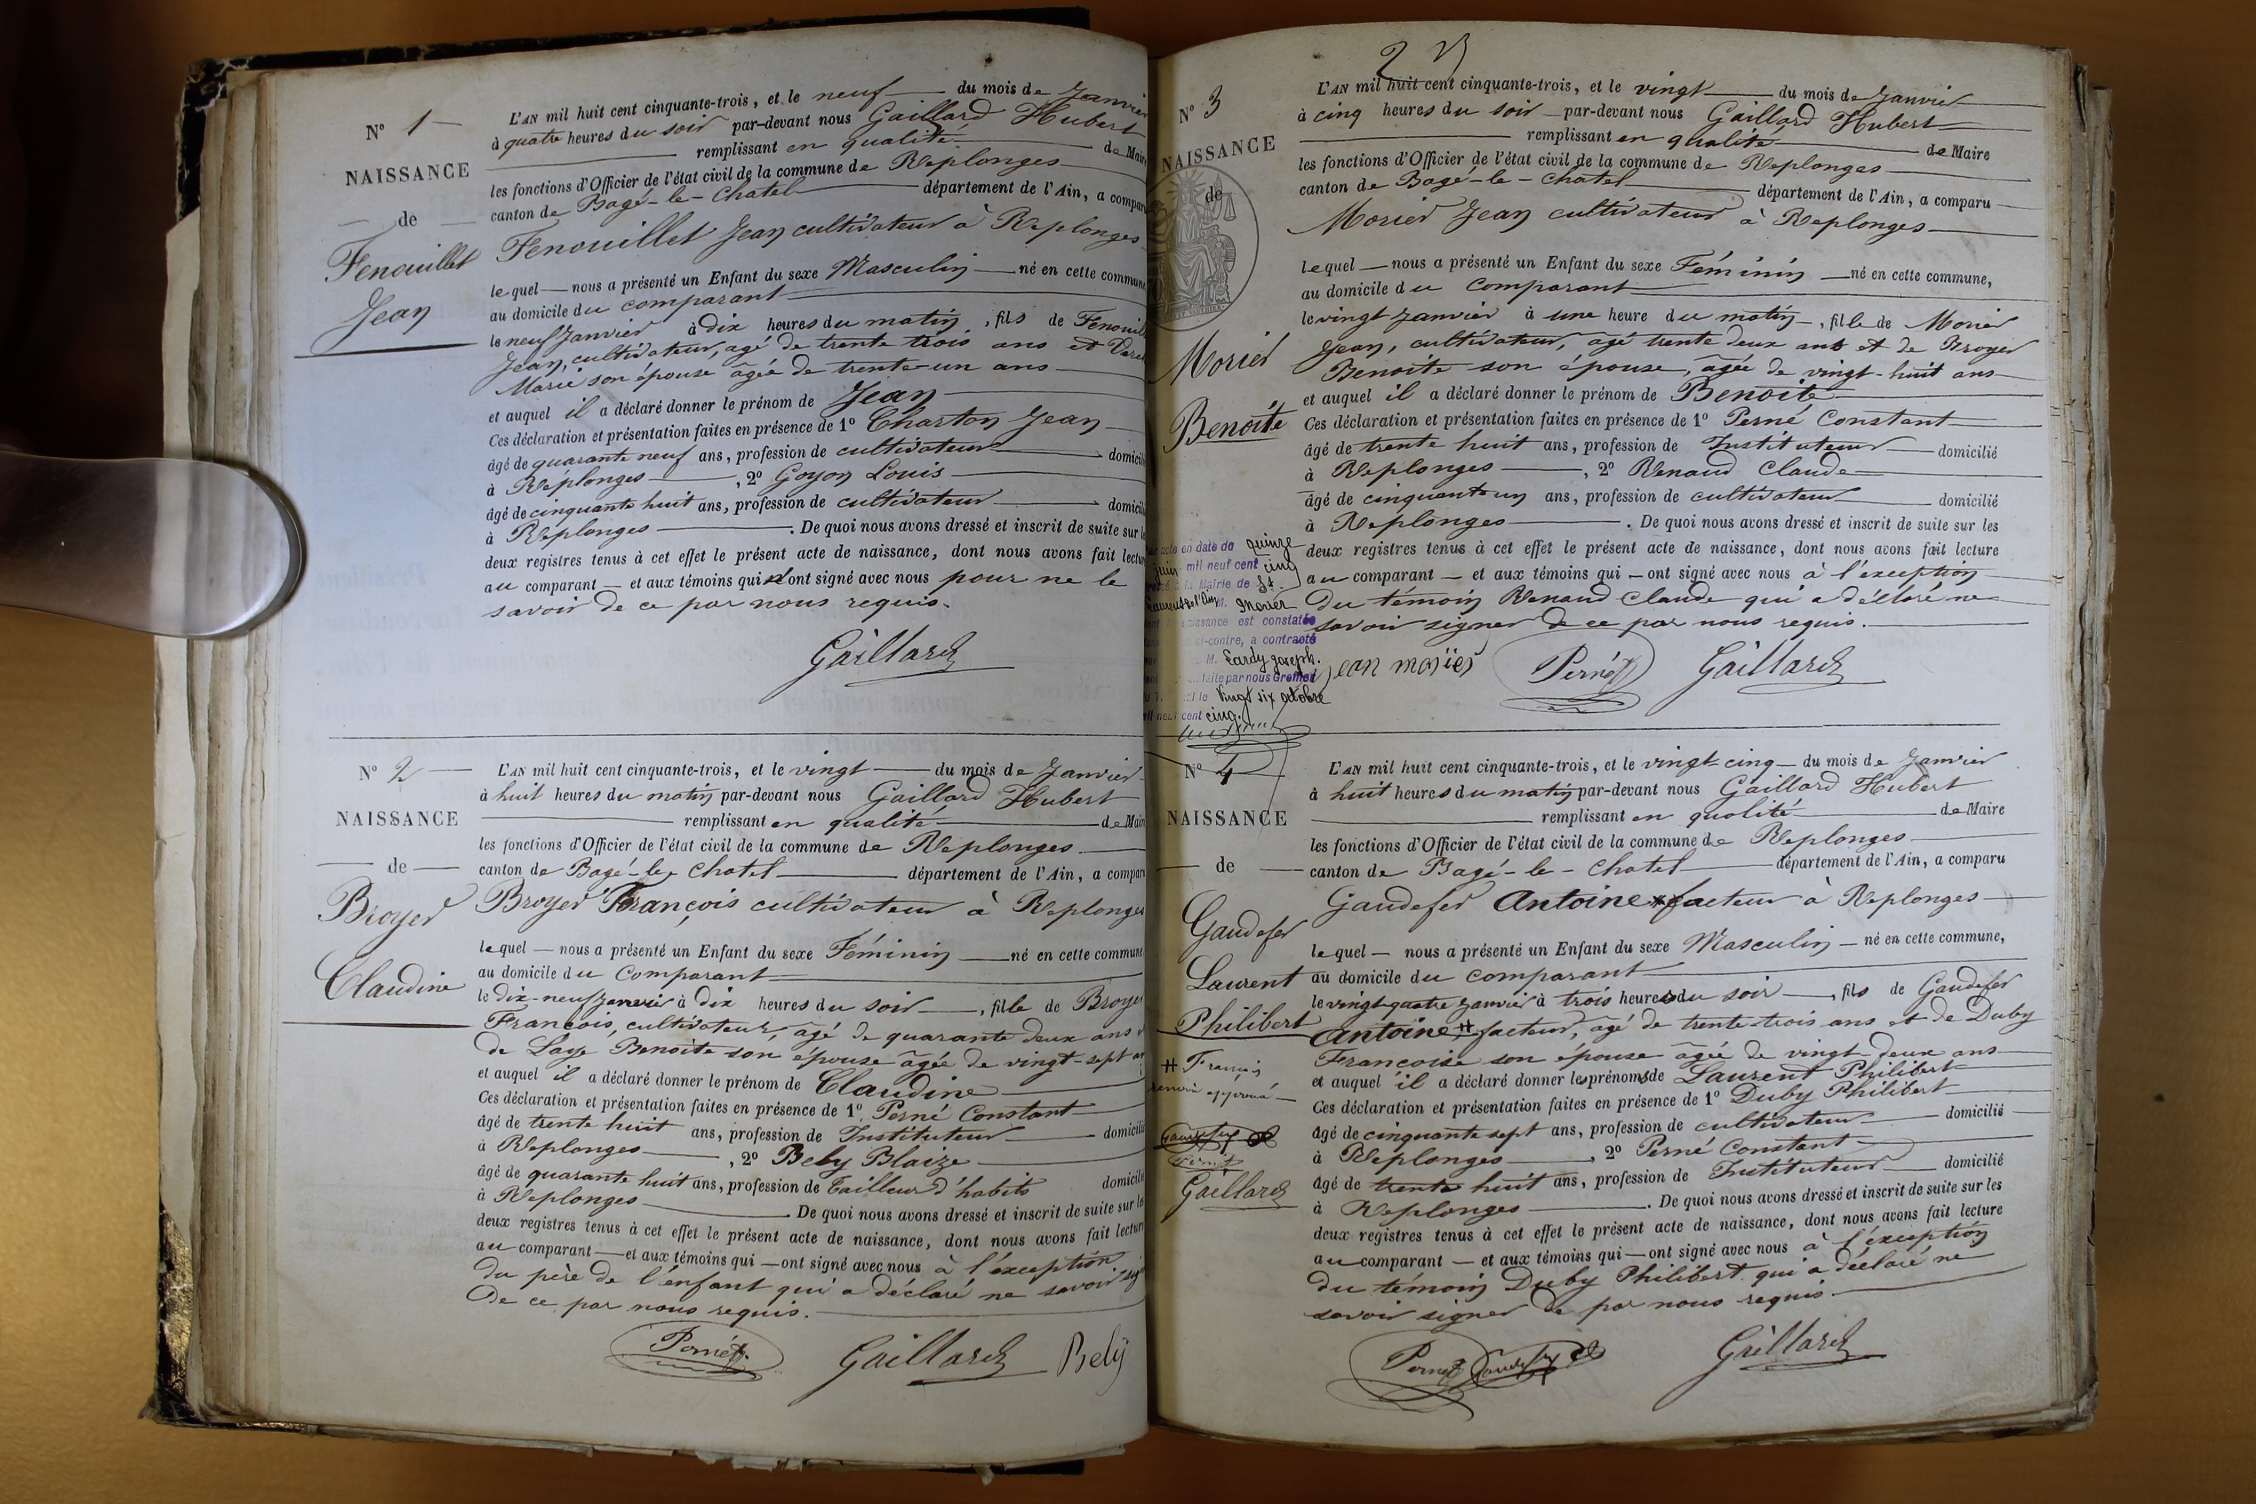 N° 1
NAISSANCE
de
Fenouillet
Jean
L'AN mil huit cent cinquante-trois, et le neuf du mois de Janvier
à quatre heures du soir par-devant nous Gaillard Hubert
remplissant en qualité de Maire
les fonctions d'Officier de l'état civil de la commune de Replonges
canton de Bagé-le-Chatel département de l'Ain, a compar
Fenouillet Jean cultivateur à Replonges
lequel nous a présenté un Enfant du sexe Masculin né en cette commune
au domicile du comparant
le neuf Janvier à dix heures du matin, fils de Fenouil
Jean, cultivateur, agé de trente trois ans et
Marie son épouse âgée de trente-un ans
et auquel il a déclaré donner le prénom de Jean
Ces déclaration et présentation faites en présence de 1° Charton Jean
âgé de quarante neuf ans, profession de cultivateur domicili
à Replonges, 2° Goyon Louis
âgé de cinquante huit ans, profession de cultivateur domicili
à Replonges. De quoi nous avons dressé et inscrit de suite sur le
deux registres tenus à cet effet le présent acte de naissance, dont nous avons fait lectur
au comparant et aux témoins qui n'ont signé avec nous pour ne le
savoir de ce par nous requis.
Gaillard
N° 2
NAISSANCE
de
Broyer
Claudine
L'AN mil huit cent cinquante-trois, et le vingt du mois de Janvier
à huit heures du matin par-devant nous Gaillard Hubert
remplissant en qualité de Mair
les fonctions d'Officier de l'état civil de la commune de Replonges
canton de Bagé-le-Chatel département de l'Ain, a compar
Broyer François cultivateur à Replonges
lequel nous a présenté un Enfant du sexe Féminin né en cette commune
au domicile du comparant
le dix-neuf Janvier à dix heures du soir, fille de Broyer
François, cultivateur, agé de quarante deux ans
de Laye Benoite son épouse agée de vingt-sept an
et auquel il a déclaré donner le prénom de Claudine
Ces déclaration et présentation faites en présence de 1° Perné Constant
âgé de trente huit ans, profession de Instituteur domicilié
à Replonges, 2° Bely Blaize
âgé de quarante huit ans, profession de Tailleur d'habits domicili
à Replonges. De quoi nous avons dressé et inscrit de suite sur le
deux registres tenus à cet effet le présent acte de naissance, dont nous avons fait lectur
au comparant et aux témoins qui ont signé avec nous à l'exception
du père de l'enfant qui a déclaré ne savoir sig
de ce par nous requis.
Perné Gaillard Bely
N° 3
NAISSANCE
de
Morier
Benoite
L'AN mil huit cent cinquante-trois, et le vingt du mois de Janvier
à cinq heures du soir par-devant nous Gaillard Hubert
remplissant en qualité de Maire
les fonctions d'Officier de l'état civil de la commune de Replonges
canton de Bagé-le-Chatel département de l'Ain, a comparu
Morier Jean cultivateur à Replonges
lequel nous a présenté un Enfant du sexe Féminin né en cette commune,
au domicile du comparant
le vingt Janvier à une heure du matin, fille de Morier
Jean, cultivateur, agé trente deux ans et de Broyer
Benoite son épouse, âgée de vingt-huit ans
et auquel il a déclaré donner le prénom de Benoite
Ces déclaration et présentation faites en présence de 1° Perné Constant
âgé de trente huit ans, profession de Instituteur domicilié
à Replonges, 2° Renaud Claude
âgé de cinquante un ans, profession de cultivateur domicilié
à Replonges. De quoi nous avons dressé et inscrit de suite sur les
deux registres tenus à cet effet le présent acte de naissance, dont nous avons fait lecture
au comparant et aux témoins qui ont signé avec nous à l'exception
du témoin Renaud Claude qui a déclaré ne
savoir signer de ce par nous requis.
en date du quinze
juin mil neuf cent cinq
la Mairie de St
M. Morier
naissance est constatée
ci-contre, a contracté
M. Lardy Joseph.
faite par nous Greffier
le vingt six octobre
cent cinq.
jean moriér Perné Gaillard
N° 4
NAISSANCE
de
Gaudefer
Laurent
Philibert
L'AN mil huit cent cinquante-trois, et le vingt-cinq du mois de Janvier
à huit heures du matin par-devant nous Gaillard Hubert
remplissant en qualité de Maire
les fonctions d'Officier de l'état civil de la commune de Replonges
canton de Bagé-le-Chatel département de l'Ain, a comparu
Gaudefer Antoine # facteur à Replonges
lequel nous a présenté un Enfant du sexe Masculin né en cette commune,
au domicile du comparant
le vingt-quatre Janvier à trois heures du soir, fils de Gaudefer
Antoine # facteur, agé de trente-trois ans et de Duby
Françoise son épouse agée de vingt-deux ans
et auquel il a déclaré donner les prénoms de Laurent Philibert
Ces déclaration et présentation faites en présence de 1° Duby Philibert
âgé de cinquante sept ans, profession de cultivateur domicilié
à Replonges, 2° Perné Constant
âgé de trente huit ans, profession de Instituteur domicilié
à Replonges. De quoi nous avons dressé et inscrit de suite sur les
deux registres tenus à cet effet le présent acte de naissance, dont nous avons fait lecture
au comparant et aux témoins qui ont signé avec nous à l'exception
du témoin Duby Philibert qui a déclaré ne
savoir signer de par nous requis.
# François
renvoi approuvé
Perné
Gaillard
Perné Gaudefer Gaillard